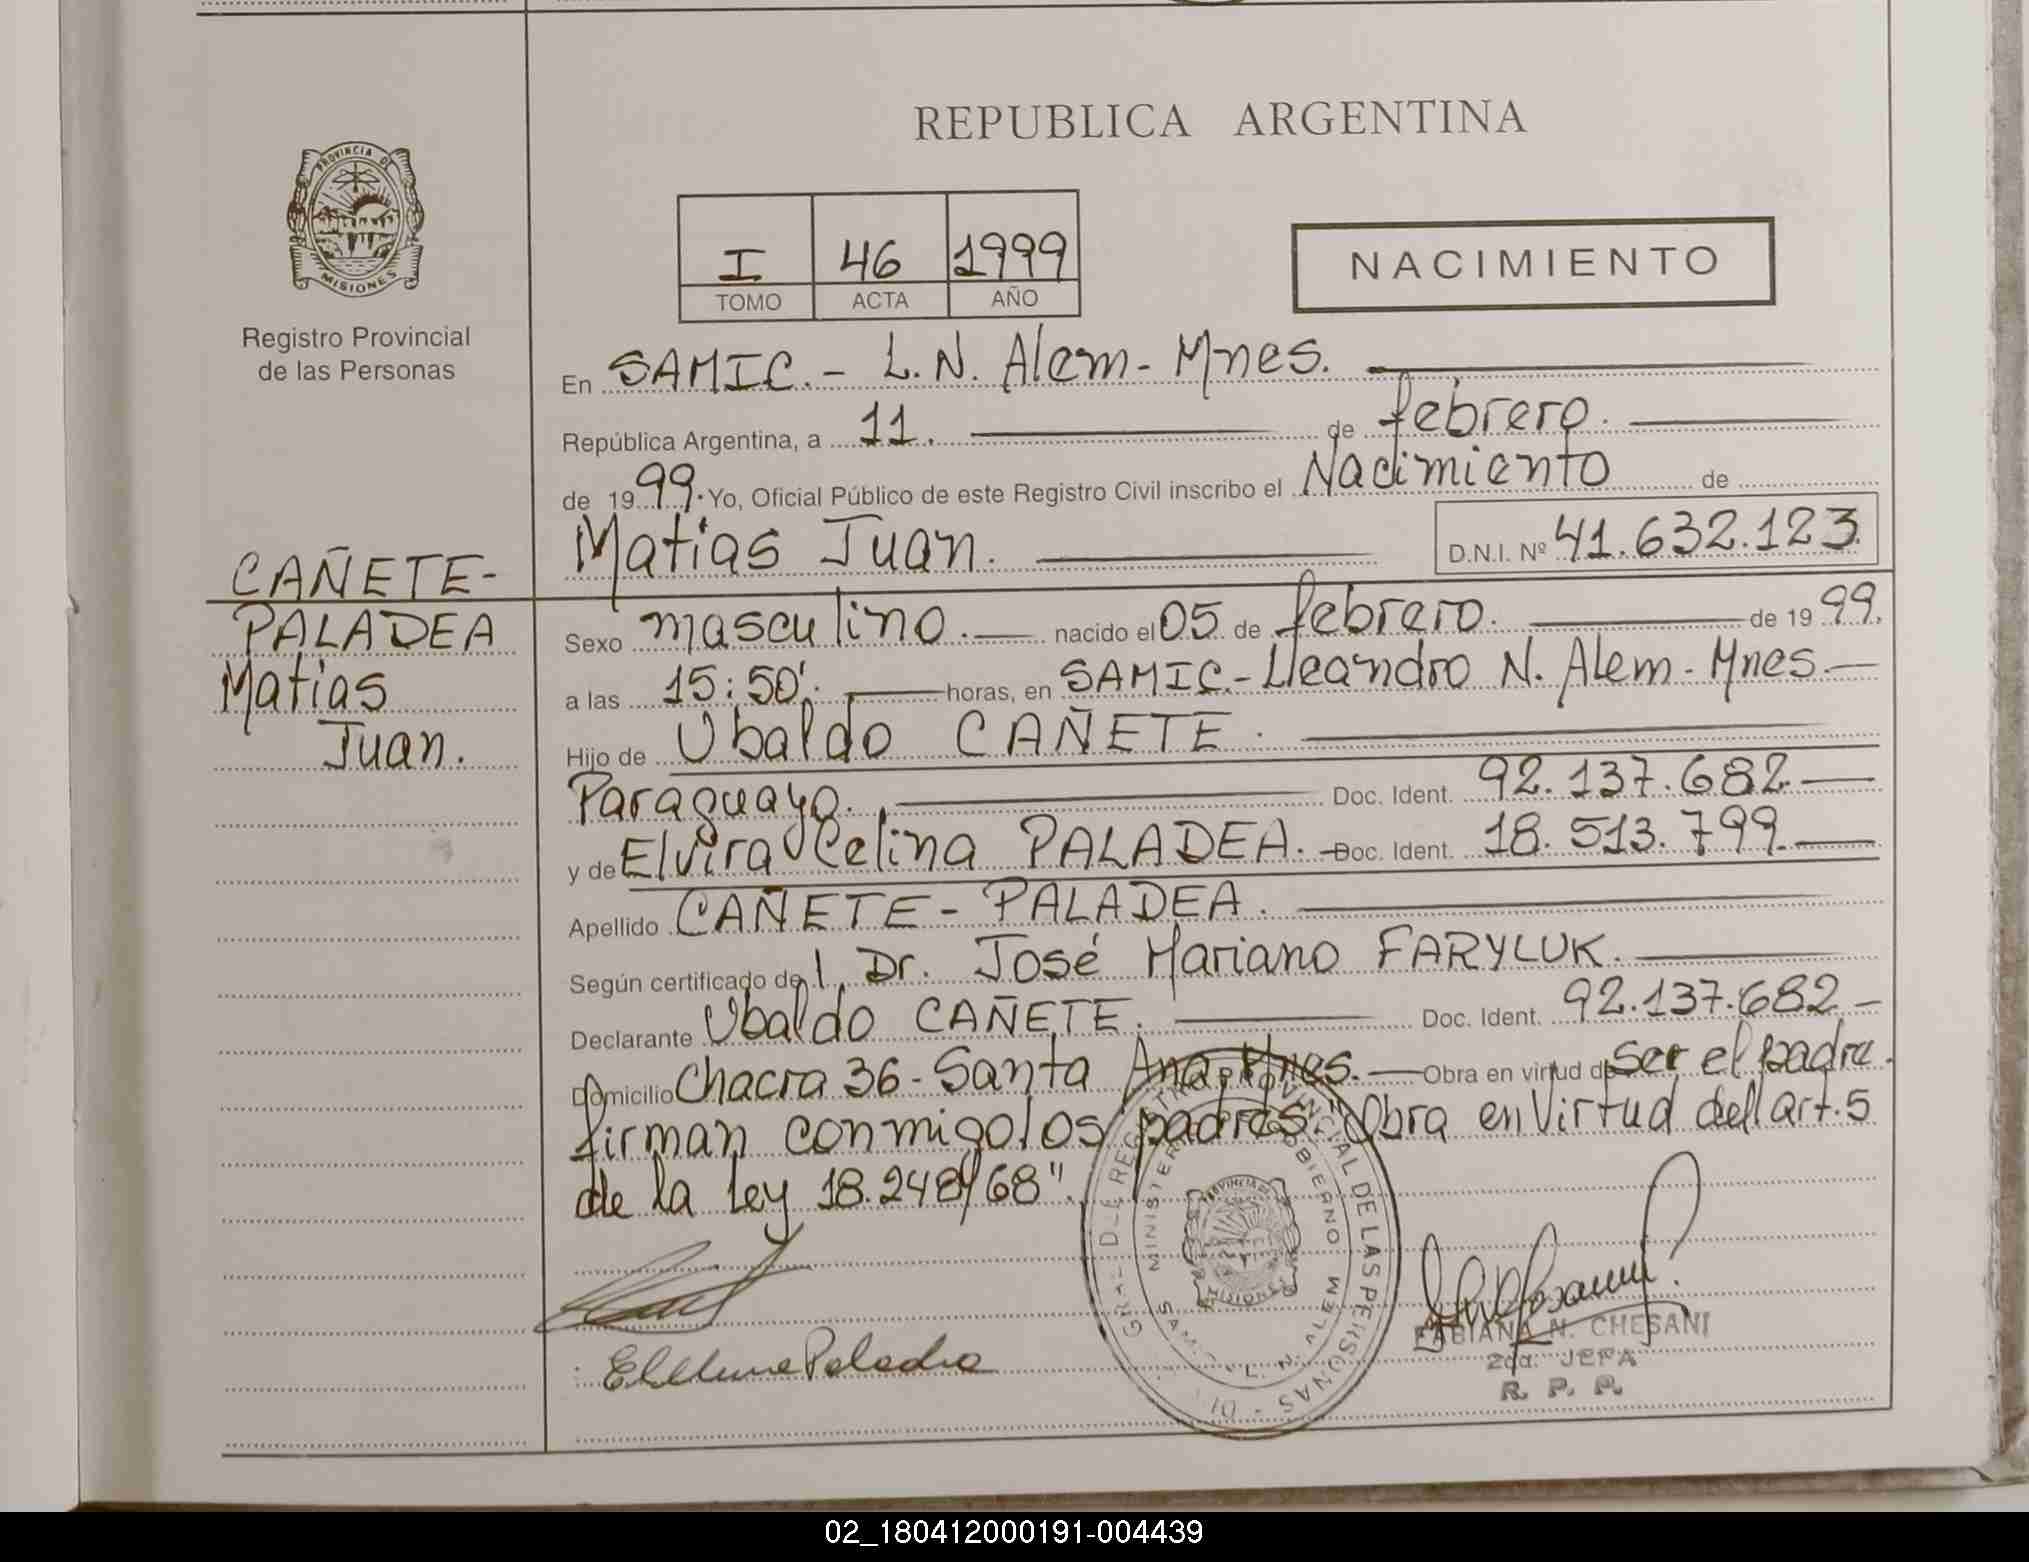 REPUBLICA ARGENTINA
PROVINCIA DE
MISIONES
Registro Provincial
de las Personas
I 46 1999
TOMO ACTA AÑO
NACIMIENTO
En SAMIC.- L.N. Alem- Mnes.
República Argentina, a 11. de febrero.
de 1999. Yo, Oficial Público de este Registro Civil inscribo el Nacimiento de
Matías Juan. D.N.I. Nº 41.632.123.
CAÑETE-
PALADEA
Matías
Juan.
Sexo masculino. nacido el 05 de febrero. de 1999.
a las 15:50'. horas, en SAMIC.- Leandro N. Alem- Mnes.
Hijo de Ubaldo CAÑETE.
Paraguayo. Doc. Ident. 92.137.682
y de Elvira Celina PALADEA. Doc. Ident. 18.513.799.
Apellido CAÑETE- PALADEA.
Según certificado del Dr. José Mariano FARYLUK.
Declarante Ubaldo CAÑETE. Doc. Ident. 92.137.682
Domicilio Chacra 36- Santa Ana, Mnes. Obra en virtud de ser el padre.
firman conmigo los padres. "Obra en Virtud del art. 5
de la Ley 18.248/68".
GRAL. DE REGISTRO PROVINCIAL DE LAS PERSONAS - DIR
MINISTERIO GOBIERNO
SAMIC L. N. ALEM
PROVINCIA DE
MISIONES
Paladea
FABIANA N. CHESANI
2da. JEFA
R. P. P.
02_180412000191-004439